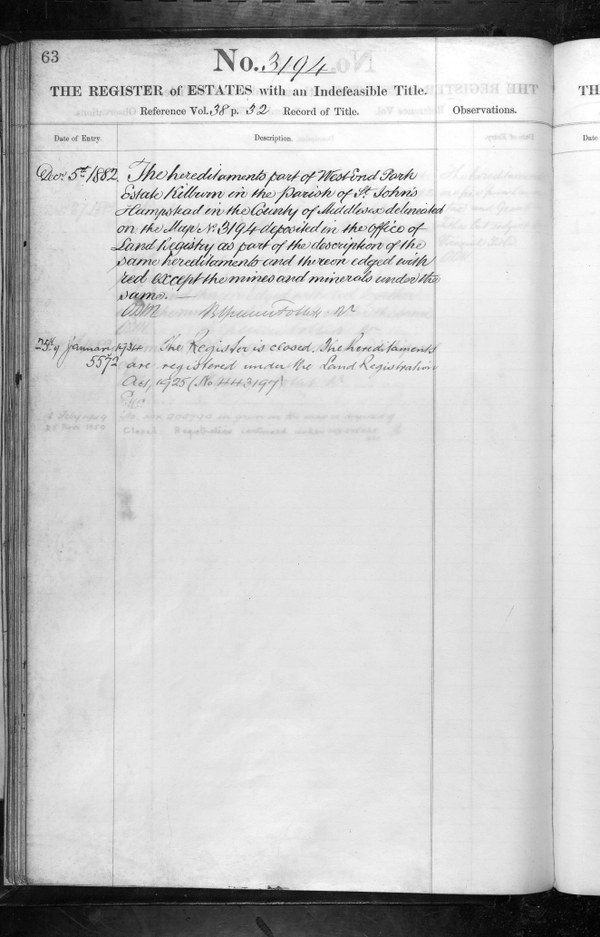 63
No. 3194
THE REGISTER of ESTATES with an Indefeasible Title.
Reference Vol. 38 p. 32 Record of Title.
Observations.
Date of Entry.
Description.
Decr 5th 1882
The hereditaments part of West End Park
Estate Kilburn in the Parish of St. John's
Hampstead in the County of Middlesex delineated
on the Map No. 3194 deposited in the Office of
Land Registry as part of the description of the
same hereditaments and thereon edged with
red except the mines and minerals under the
same. —
25th January 1934
5572
The Register is closed. The hereditaments
are registered under the Land Registration
Act, 1925 (No 443197)
TH
Date